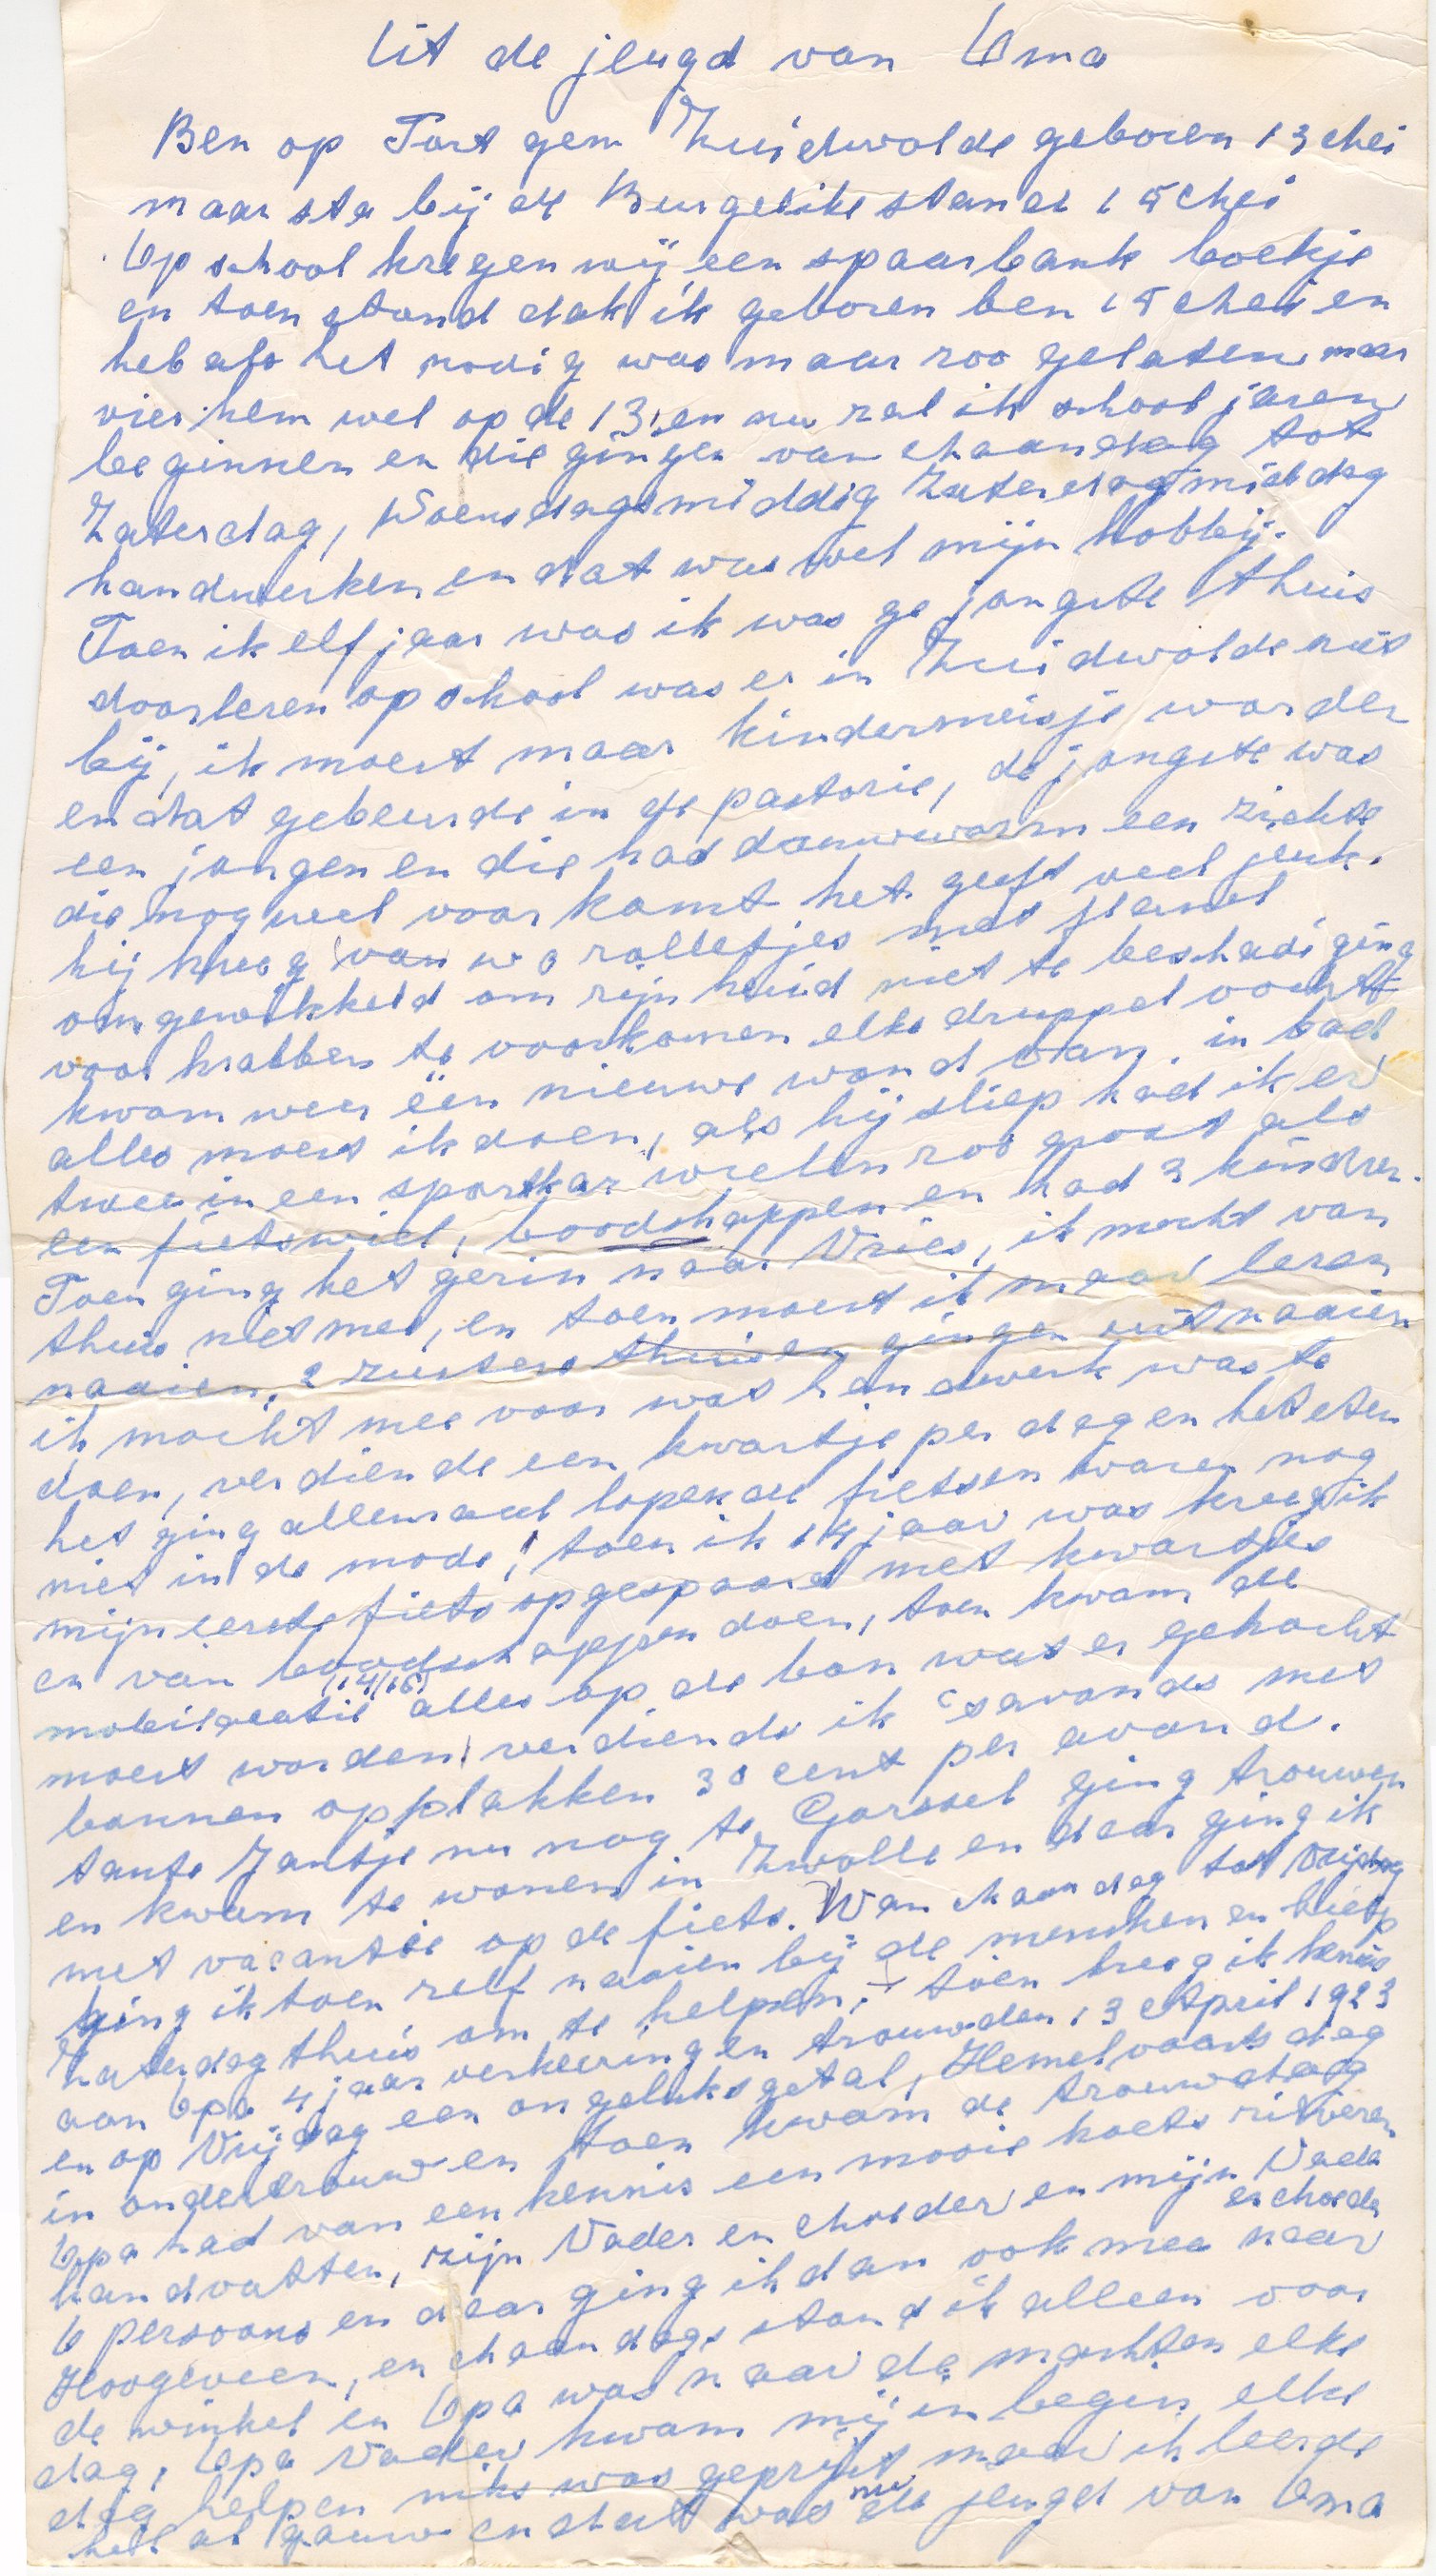 Uit de jeugd van Oma
Ben op Fort gem Zuidwolde geboren 13 Mei
maar sta bij de Burgelike stand 15 Mei
Op school kregen wij een spaarbank boekje
en toen stond dat ik geboren ben 15 Mei en
heb als het nodig was maar zoo gelaten maar
vier hem wel op de 13, en nu zal ik school jaren
beginnen en die gingen van Maandag tot
Zaterdag, Woensdagsmiddig Zaterdagmiddag
handwerken en dat was wel mijn hobbij.
Toen ik elf jaar was ik was de jongste thuis
doorleren op school was er in Zuidwolde niet
bij, ik moest maar kindermeisje worden
en dat gebeurde in de pastorie, de jongste was
een jongen en die had dauwworm een ziekte
die nog wel voor komt het geeft veel jeuk.
hij kreeg van w o rolletjes met flanel
omgewikkeld om zijn huid niet te beschadiging
voor krabben te voorkomen elke druppel vocht
kwam weer één nieuwe wond van. in bad
alles moest ik doen, als hij sliep had ik er
twee in een sportkar wielen zoo groot als
een fietswiel, boodschappen en had 3 kindren.
Toen ging het gezin naar Vries, ik mocht van
thuis niet mee, en toen moest ik maar leren
naaien. 2 zusters thuis en gingen uit naaien
ik mocht mee voor wat handwerk was te
doen, verdiende een kwartje per dag en het eten
het ging allemaal lopende fietsen waren nog
niet in de mode, toen ik 14 jaar was kreeg ik
mijn eerste fiets opgespaard met kwartjes
en van boodschappen doen, toen kwam de
mobilisatie (14/18) alles op de bon wat er gekocht
moest worden, verdiende ik 's avonds met
bonnen opplakken 30 cent per avond.
tante Jantje nu nog te Gorssel ging trouwen
en kwam te wonen in Zwolle en daar ging ik
met vacantie op de fiets. Van Maandag tot Vrijdag
ging ik toen zelf naaien bij de menschen en bleef
Zaterdag thuis om te helpen. toen kreeg ik kennis
aan Opa 4 jaar verkeering en trouwden 13 April 1923
en op Vrijdag een ongeluksgetal, Hemelvaartsdag
in ondertrouw en toen kwam de trouwdag
Opa had van een kennis een mooie koets zilveren
handvatten, zijn Vader en Moeder en mijn Vader
en Moeder
6 persoons en daar ging ik dan ook mee naar
Hoogeveen, en Maandags stond ik alleen voor
de winkel en Opa was naar de markten elke
dag, Opa Vader kwam mij in begin elke
dag helpen niks was geprijst maar ik leerde
het al gauw en dat was nu de jeugd van Oma